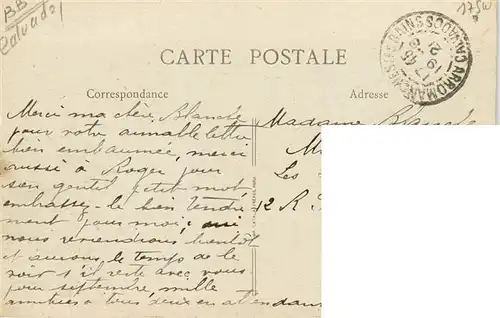 BB
Calvados
175W
CARTE POSTALE
ARROMANCHES LES BAINS CALVADOS
Correspondance
Adresse
Merci ma chère Blanche
pour votre aimable lettre
bien embaumée, merci
aussi à Roger pour
son gentil petit mot
embrassez-le bien tendre
ment pour moi;
nous reviendrons bientôt
et aurons, le temps de le
voir s'il reste avec vous
pour septembre, mille
amitiées à tous deux en attendant
Madame Blanche
M
Les
12 R